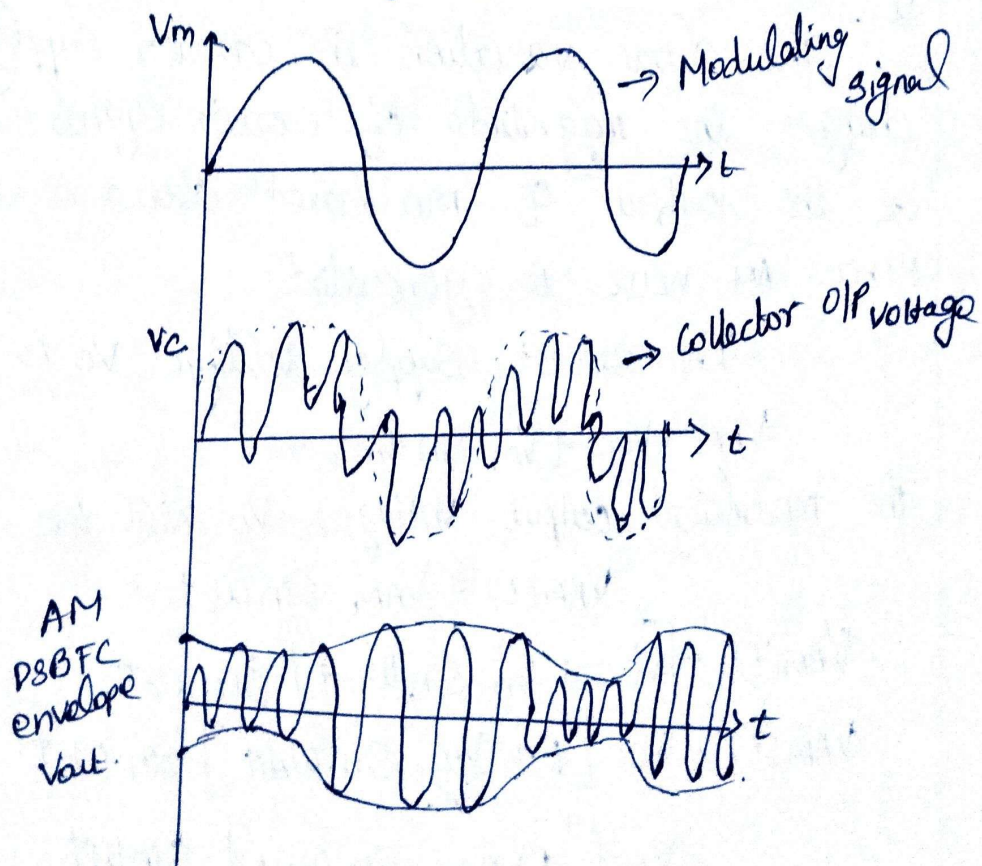 Vm
→ Modulating
signal
t
Vc
→ Collector O/P voltage
t
AM
DSBFC
envelope
Vout.
t